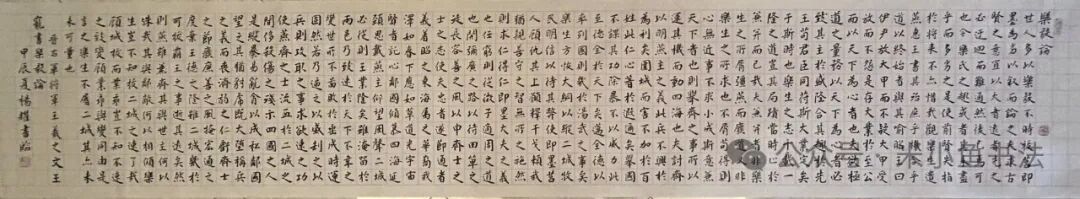 樂毅論
世人多以樂毅不時拔莒即
墨為劣是以敘而論之夫求古
賢之意宜以大者遠者先之
必迂迴而難通然後已焉可
也今樂氏之趣或者其未盡
乎而多劣之是使前賢失指
於將來不亦惜哉觀樂生遺
燕惠王書其殆庶乎機合乎
道以終始者與其喻昭王曰
伊尹放大甲而不疑大甲受
放而不怨是存大業於至公
而以天下為心者也夫欲極
道之量務以天下為心者必
致其主於盛隆合其趣於先
王苟君臣同符斯大業定矣
于斯時也樂生之志千載一
遇也亦將行千載一隆之道
豈其局蹟當時止於兼
并而已哉夫兼并者非樂
生之所屑彊燕而廢道又非
樂生之所求也不屑苟得則
心無近事不求小成斯意兼
天下者也則舉齊之事所以
運其機而動四海也夫討齊
以明燕主之義此兵不興於
為利矣圍城而害不加於百
姓此仁心著於遐邇矣舉國
不謀其功除暴不以威力此
至德令於天下矣邁至德以
率列國則幾於湯武之事矣
樂生方恢大綱以縱二城牧
民明信以待其弊使即墨莒
人顧仇其上願釋干戈賴我
猶親善守之智無所之施然
則求仁得仁即墨大夫之義
也任窮則從微子適周之道
也開彌廣之路以待田單之
徒長容善之風以申齊士之
志使夫忠者遂節通者
義著昭之東海屬之華裔我
澤如春下應如草道光宇宙
賢者託心鄰國傾慕四海延
頸思戴燕主仰望風聲二城
必從則王業隆矣雖淹留於
兩邑乃致速於天下不幸之
變世所不圖敗於垂成時運
固然若乃逼之以威劫之以
兵則攻取之事求欲速之功
使燕齊之士流血於二城之
間侈殺傷之殘示四國之人
是縱暴易亂貪以成私鄰國
望之其猶豺虎既大墮稱兵
之義而喪濟弱之仁虧齊士
之節廢廉善之風掩宏通之
度棄王德之隆雖二城幾於
可拔霸王之事逝其遠矣然
則燕雖兼齊其與世主何以
殊哉其與鄰敵何以相傾樂
生豈不知拔二城之速了哉
顧城拔而業乖豈不知不速
之致變顧業乖與變同由是
言之樂生不屑二城其亦未
可量也
晉右軍將軍王羲之文王
寵書樂毅論
甲辰夏楊耀書臨